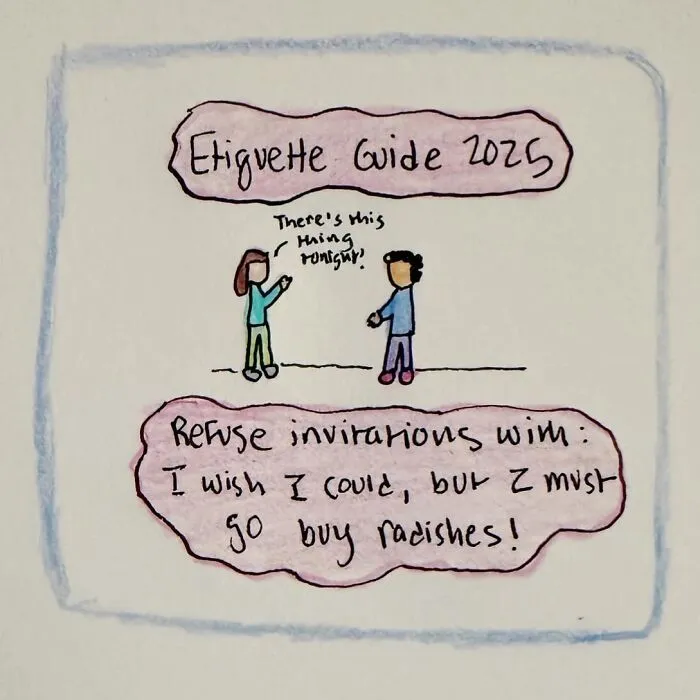 Etiquette Guide 2025
There's this
thing
tonight!
Refuse invitations with:
I wish I could, but I must
go buy radishes!